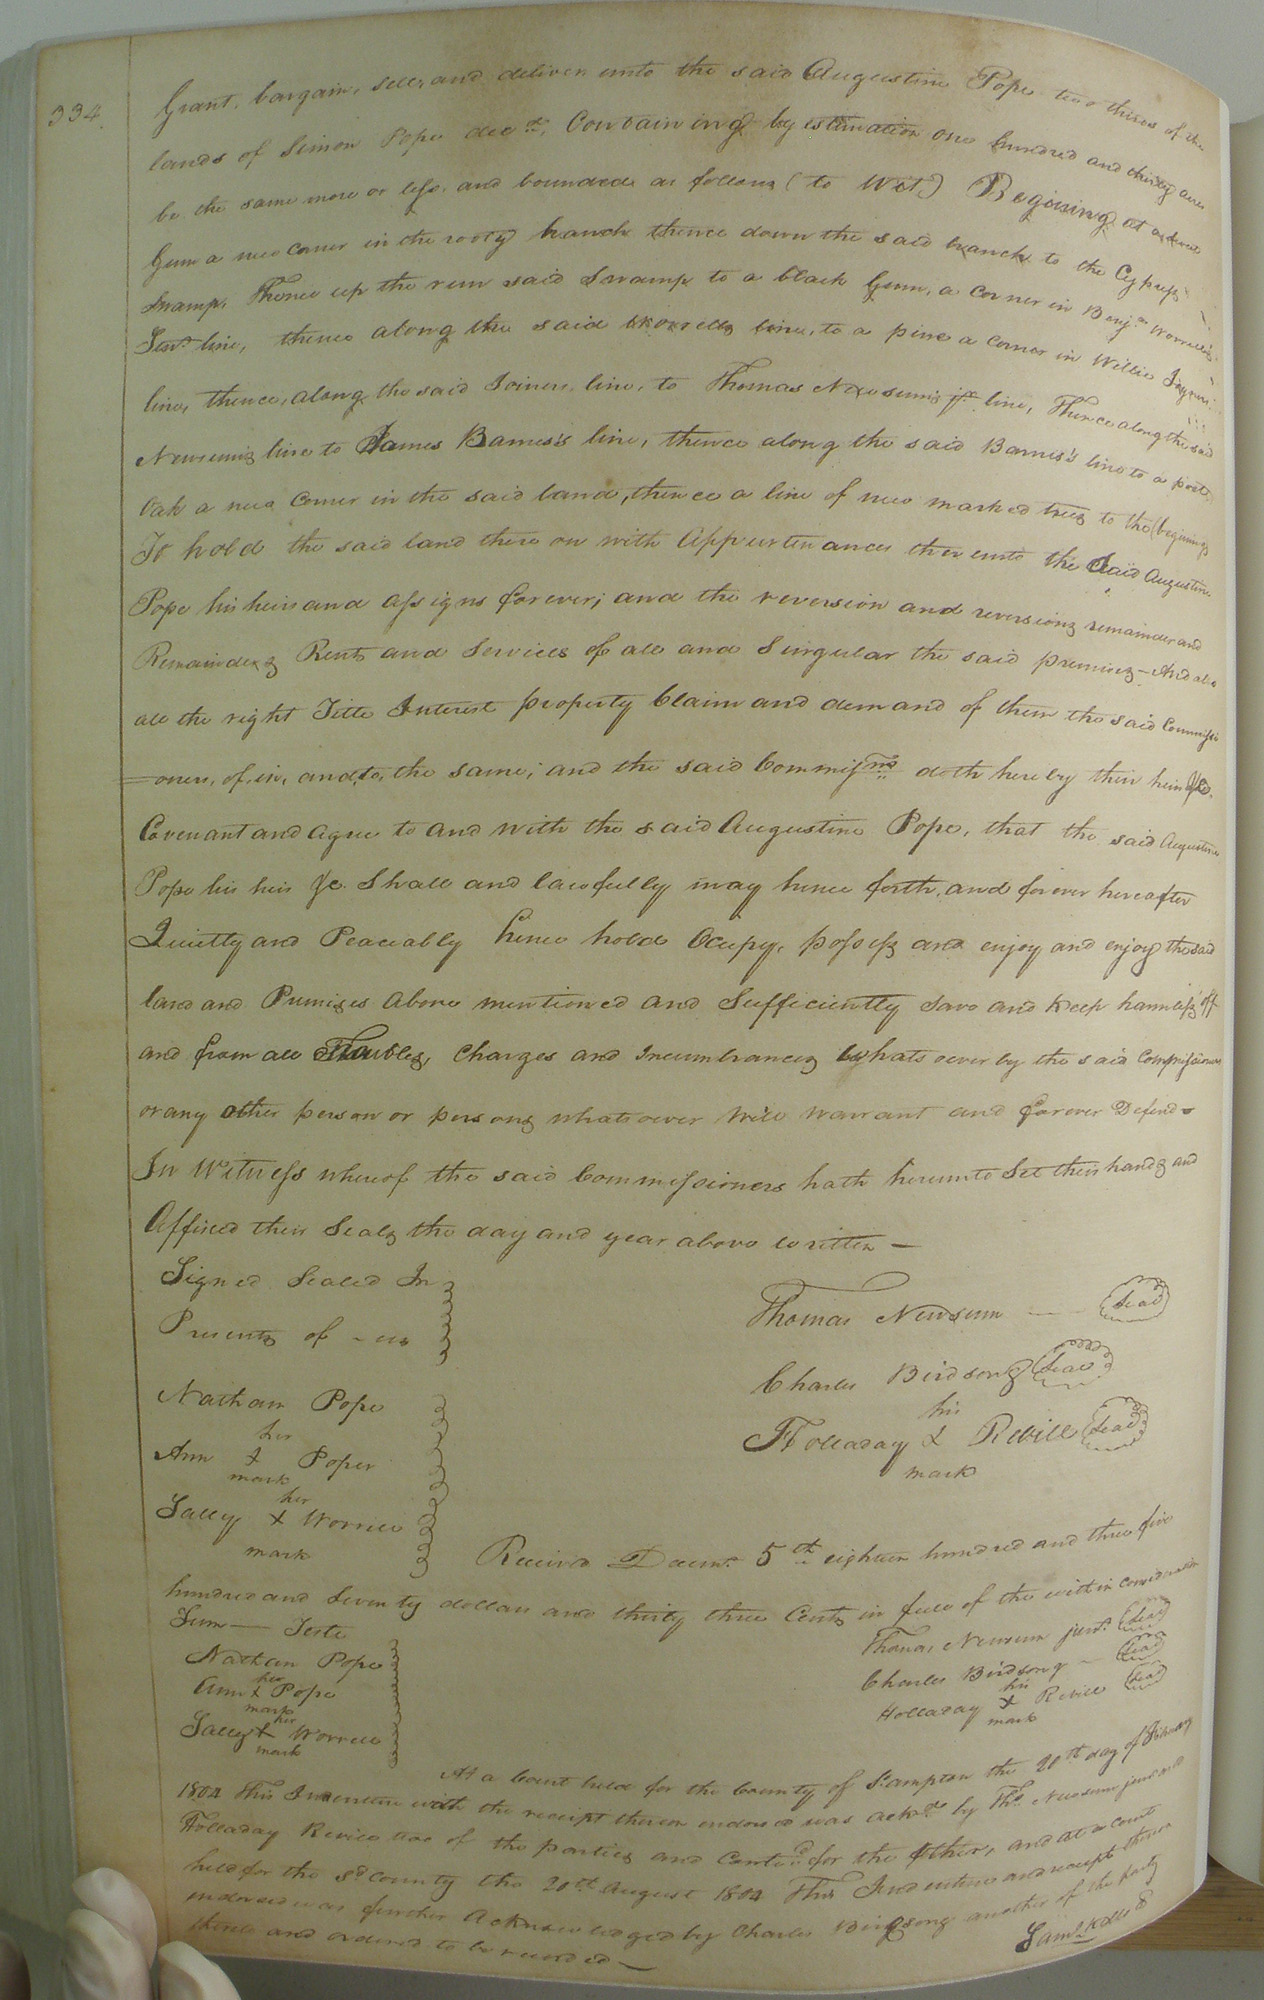 334.
Grant, bargain, sell, and deliver unto the said Augustine Pope two thirds of the
lands of Simon Pope decd., Containing by estimation one hundred and thirty acres
be the same more or less, and bounded as follows (to Wit,) Begining at a sweet
Gum a new corner in the rooty branch thence down the said branch to the Cypress
Swamp. Thence up the run said Swamp to a black Gum, a corner in Benjn. Worrell's
Senr. line, thence along the said Worrells line, to a pine a corner in Willie Joyners
line, thence, along the said Joiners line, to Thomas Newsum's jr. line, Thence along the said
Newsums line to James Barnes's line, thence along the said Barnes's line to a post
Oak a new Corner in the said land, thence a line of new marked trees to the begining
To hold the said land there on with Appurtenances there unto the said Augustine
Pope his heirs and assigns forever; and the reversion and reversions remainder and
Remainders Rents and Services of all and Singular the said premises - And also
all the right Title Interest property Claim and demand of them the said Commissi
=oners, of, in, and to, the same; and the said Commissrs. doth hereby their heirs &c.
Covenant and agree to and with the said Augustine Pope, that the said Augustine
Pope his heirs &c. Shall and lawfully may hence forth, and forever hereafter
Quietly and Peaceably hence hold Occupy, possess and enjoy and enjoy the said
land and Premises above mentioned and Sufficiently save and keep harmless off
and from all Troubles, Charges and Incumbrances Whatsoever by the said Commissioners
or any other person or persons whatsoever Will Warrant and forever Defend -
In Witness whereof the said Commissioners hath hereunto Set their hands and
Affixed their Seals the day and year above written -
Signed Sealed In
Presents of - us
Thomas Newsum - - Seal
Charles Birdsong Seal
Nathan Pope
his
Holladay X Revill Seal
mark
her
Ann X Poper
mark
her
Sally X Worrell
mark
Received Decemr. 5th eighteen hundred and three five
hundred and Seventy dollars and thirty three Cents in full of the within consideration
Sum - Teste
Thomas Newsum junr. Seal
Nathan Pope
Charles Birdsong - Seal
her
Ann X Pope
mark
his
Holladay X Revill Seal
mark
her
Sally X Worrell
mark
At a Court held for the County of S.ampton the 20th day of February
1804 This Indenture with the receipt thereon endorsed was ackd. by Thos. Newsum junr and
Holladay Revill two of the parties and Contd. for the other, and at a Court
held for the Sd. County the 20th August 1804 This Indenture and receipt thereon
endorsed was further Acknowledged by Charles Birdsong another of the party
thereto and ordered to be recorded -
Saml. Kello